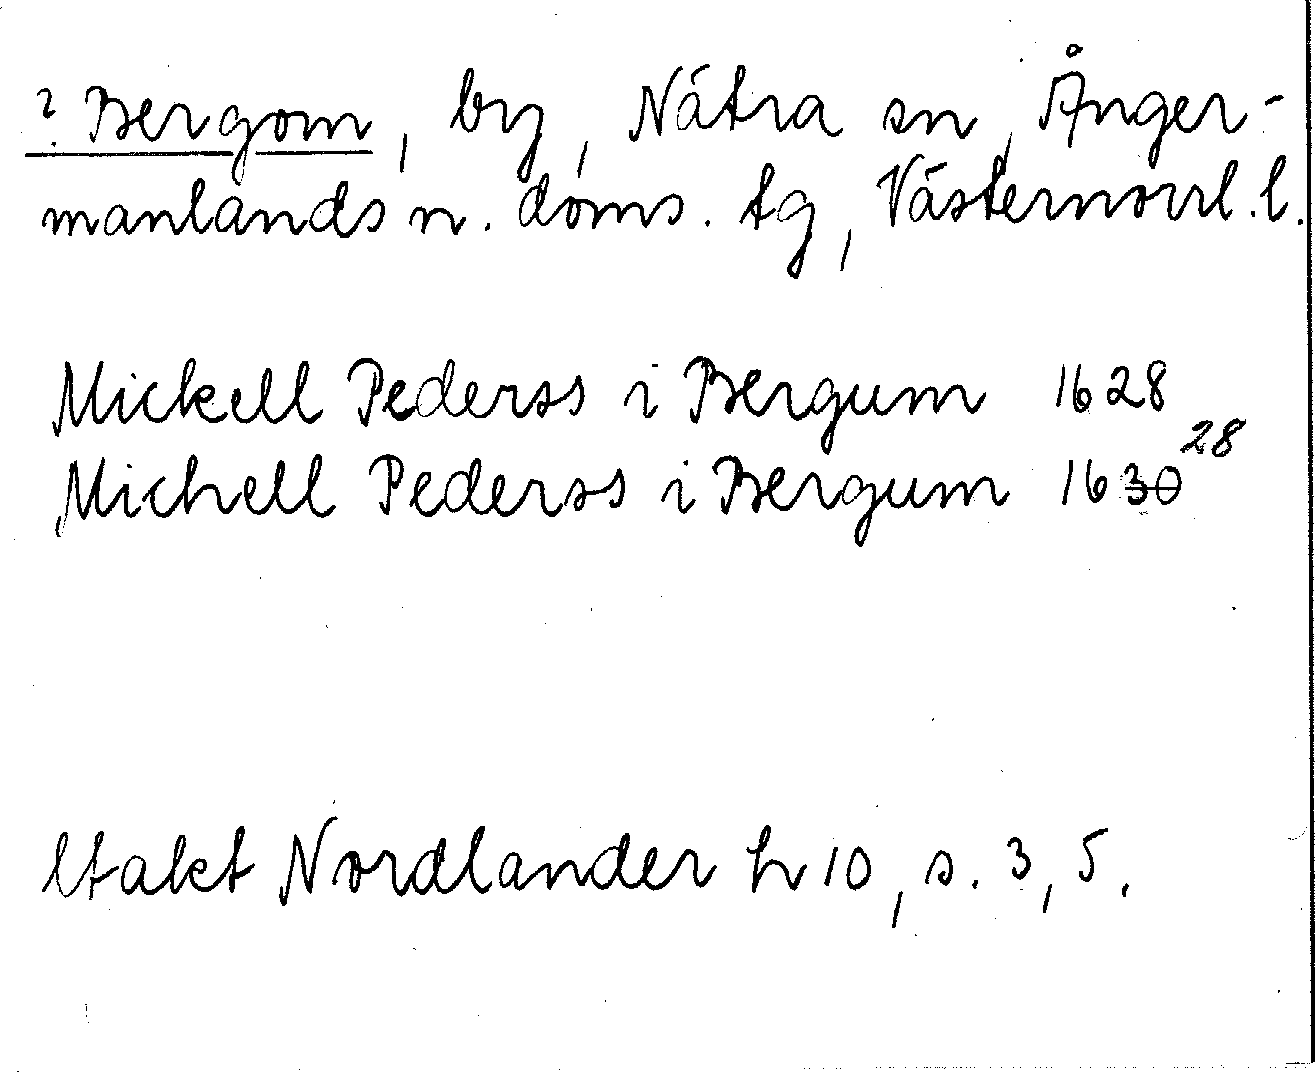 ? Bergom, by, Nätra sn, Ånger-
manlands n. doms. tg, Västernorrl. l.
Mickell Pederss i Bergum 1628
Michell Pederss i Bergum 1630 28
Utakt Nordlander h 10, s. 3, 5.